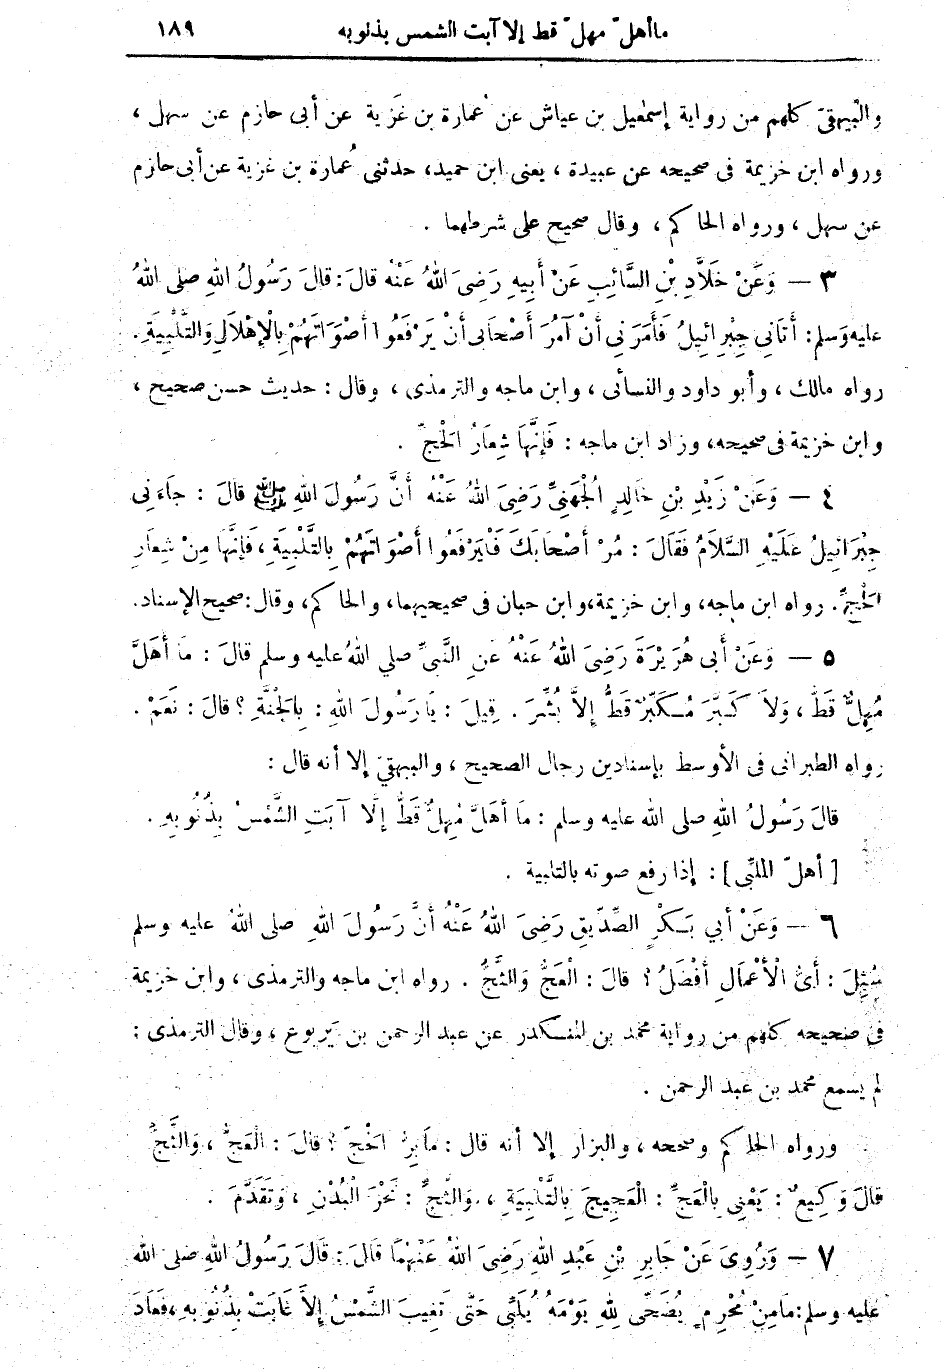 ما أهل مهل قط إلا آبت الشمس بذنوبه ١٨٩
والبيهقىّ كلهم من رواية إسمعيل بن عياش عن عُمارة بن غَزية عن أبى حازم عن سهل ،
ورواه ابن خزيمة فى صحيحه عن عبيدة ، يعنى ابن حميد، حدثنى عُمارة بن غزية عن أبى حازم
عن سهل ، ورواه الحاكم ، وقال صحيح على شرطهما .
٣ — وَعَنْ خَلَّادِ بْنِ السَّائِبِ عَنْ أَبِيهِ رَضِىَ اللهُ عَنْهُ قالَ: قالَ رَسُولُ اللهِ صلى اللهُ
عليه وسلم: أَتَانِي جِبْرِائِيلُ فَأَمَرَنِي أَنْ آمُرَ أَصْحَابِى أَنْ يَرْفَعُوا أَصْوَاتَهُمْ بِالْإِهْلَالِ وَالتَّلْبِيَةِ.
رواه مالك ، وأبو داود والنسائى ، وابن ماجه والترمذى ، وقال : حديث حسن صحيح ،
وابن خزيمة فى صحيحه، وزاد ابن ماجه : فَإِنَّهَا شِعَارُ الْحَجِّ .
٤ — وَعَنْ زَيْدِ بْنِ خَالِدٍ الْجُهَنِىِّ رَضِىَ اللهُ عَنْهُ أَنَّ رَسُولَ اللهِ ﷺ قالَ : جاءَنِى
جِبْرَائِيلُ عَلَيْهِ السَّلَامُ فَقَالَ : مُرْ أَصْحَابَكَ فَلْيَرْفَعُوا أَصْوَاتَهُمْ بِالتَّلْبِيَةِ ، فَإِنَّهَا مِنْ شِعَارِ
الْحَجِّ. رواه ابن ماجه، وابن خزيمة، وابن حبان فى صحيحيهما، والحاكم، وقال: صحيح الإسناد.
٥ — وَعَنْ أَبى هُرَيْرَةَ رَضِىَ اللهُ عَنْهُ عَنِ النَّبِىِّ صلي اللهُ عليه وسلم قالَ : مَا أَهَلَّ
مُهِلٌّ قَطُّ ، وَلاَ كَبَّرَ مُكَبِّرٌ قَطُّ إِلاَّ بُشِّرَ . قِيلَ : يَا رَسُولَ اللهِ : بِالْجَنَّةِ ؟ قالَ : نَعَمْ .
رواه الطبرانى فى الأوسط بإسنادين رجال الصحيح ، والبيهقىّ إلا أنه قال :
قالَ رَسُولُ اللهِ صلى الله عليه وسلم : مَا أَهَلَّ مُهِلٌّ قَطُّ إِلَّا آبَتِ الشَّمْسُ بِذُنُوبِهِ .
[ أهلّ الملبِّى ] : إذا رفع صوته بالتلبية .
٦ — وَعَنْ أَبي بَكْرٍ الصِّدِّيقِ رَضِىَ اللهُ عَنْهُ أَنَّ رَسُولَ اللهِ صلى اللهُ عليه وسلم
سُئِلَ : أَىُّ الْأَعْمَالِ أَفْضَلُ ؟ قالَ : الْعَجُّ وَالثَّجُّ . رواه ابن ماجه والترمذى ، وابن خزيمة
فى صحيحه كلهم من رواية محمد بن المنكدر عن عبد الرحمن بن يَربوع ، وقال الترمذى :
لم يسمع محمد بن عبد الرحمن .
ورواه الحاكم وصححه ، والبزار إلا أنه قال : مَا بِرُّ الْحَجِّ ؟ قالَ : الْعَجُّ ، وَالثَّجُّ
قالَ وَكِيعٌ : يَعْنِى بِالْعَجِّ : الْعَجِيجَ بِالتَّلْبِيَةِ ، وَالثَّجِّ : نَحْرَ الْبُدْنِ ، وَتَقَدَّمَ .
٧ — وَرُوِىَ عَنْ جَابِرِ بْنِ عَبْدِ اللهِ رَضِىَ اللهُ عَنْهُمَا قَالَ : قَالَ رَسُولُ اللهِ صلى الله
عليه وسلم: مَا مِنْ مُحْرِمٍ يُضَحِّى لِلهِ يَوْمَهُ يُلَبِّى حَتَّى تَغِيبَ الشَّمْسُ إِلاَّ غَابَتْ بِذُنُوبِهِ ، فَعَادَ